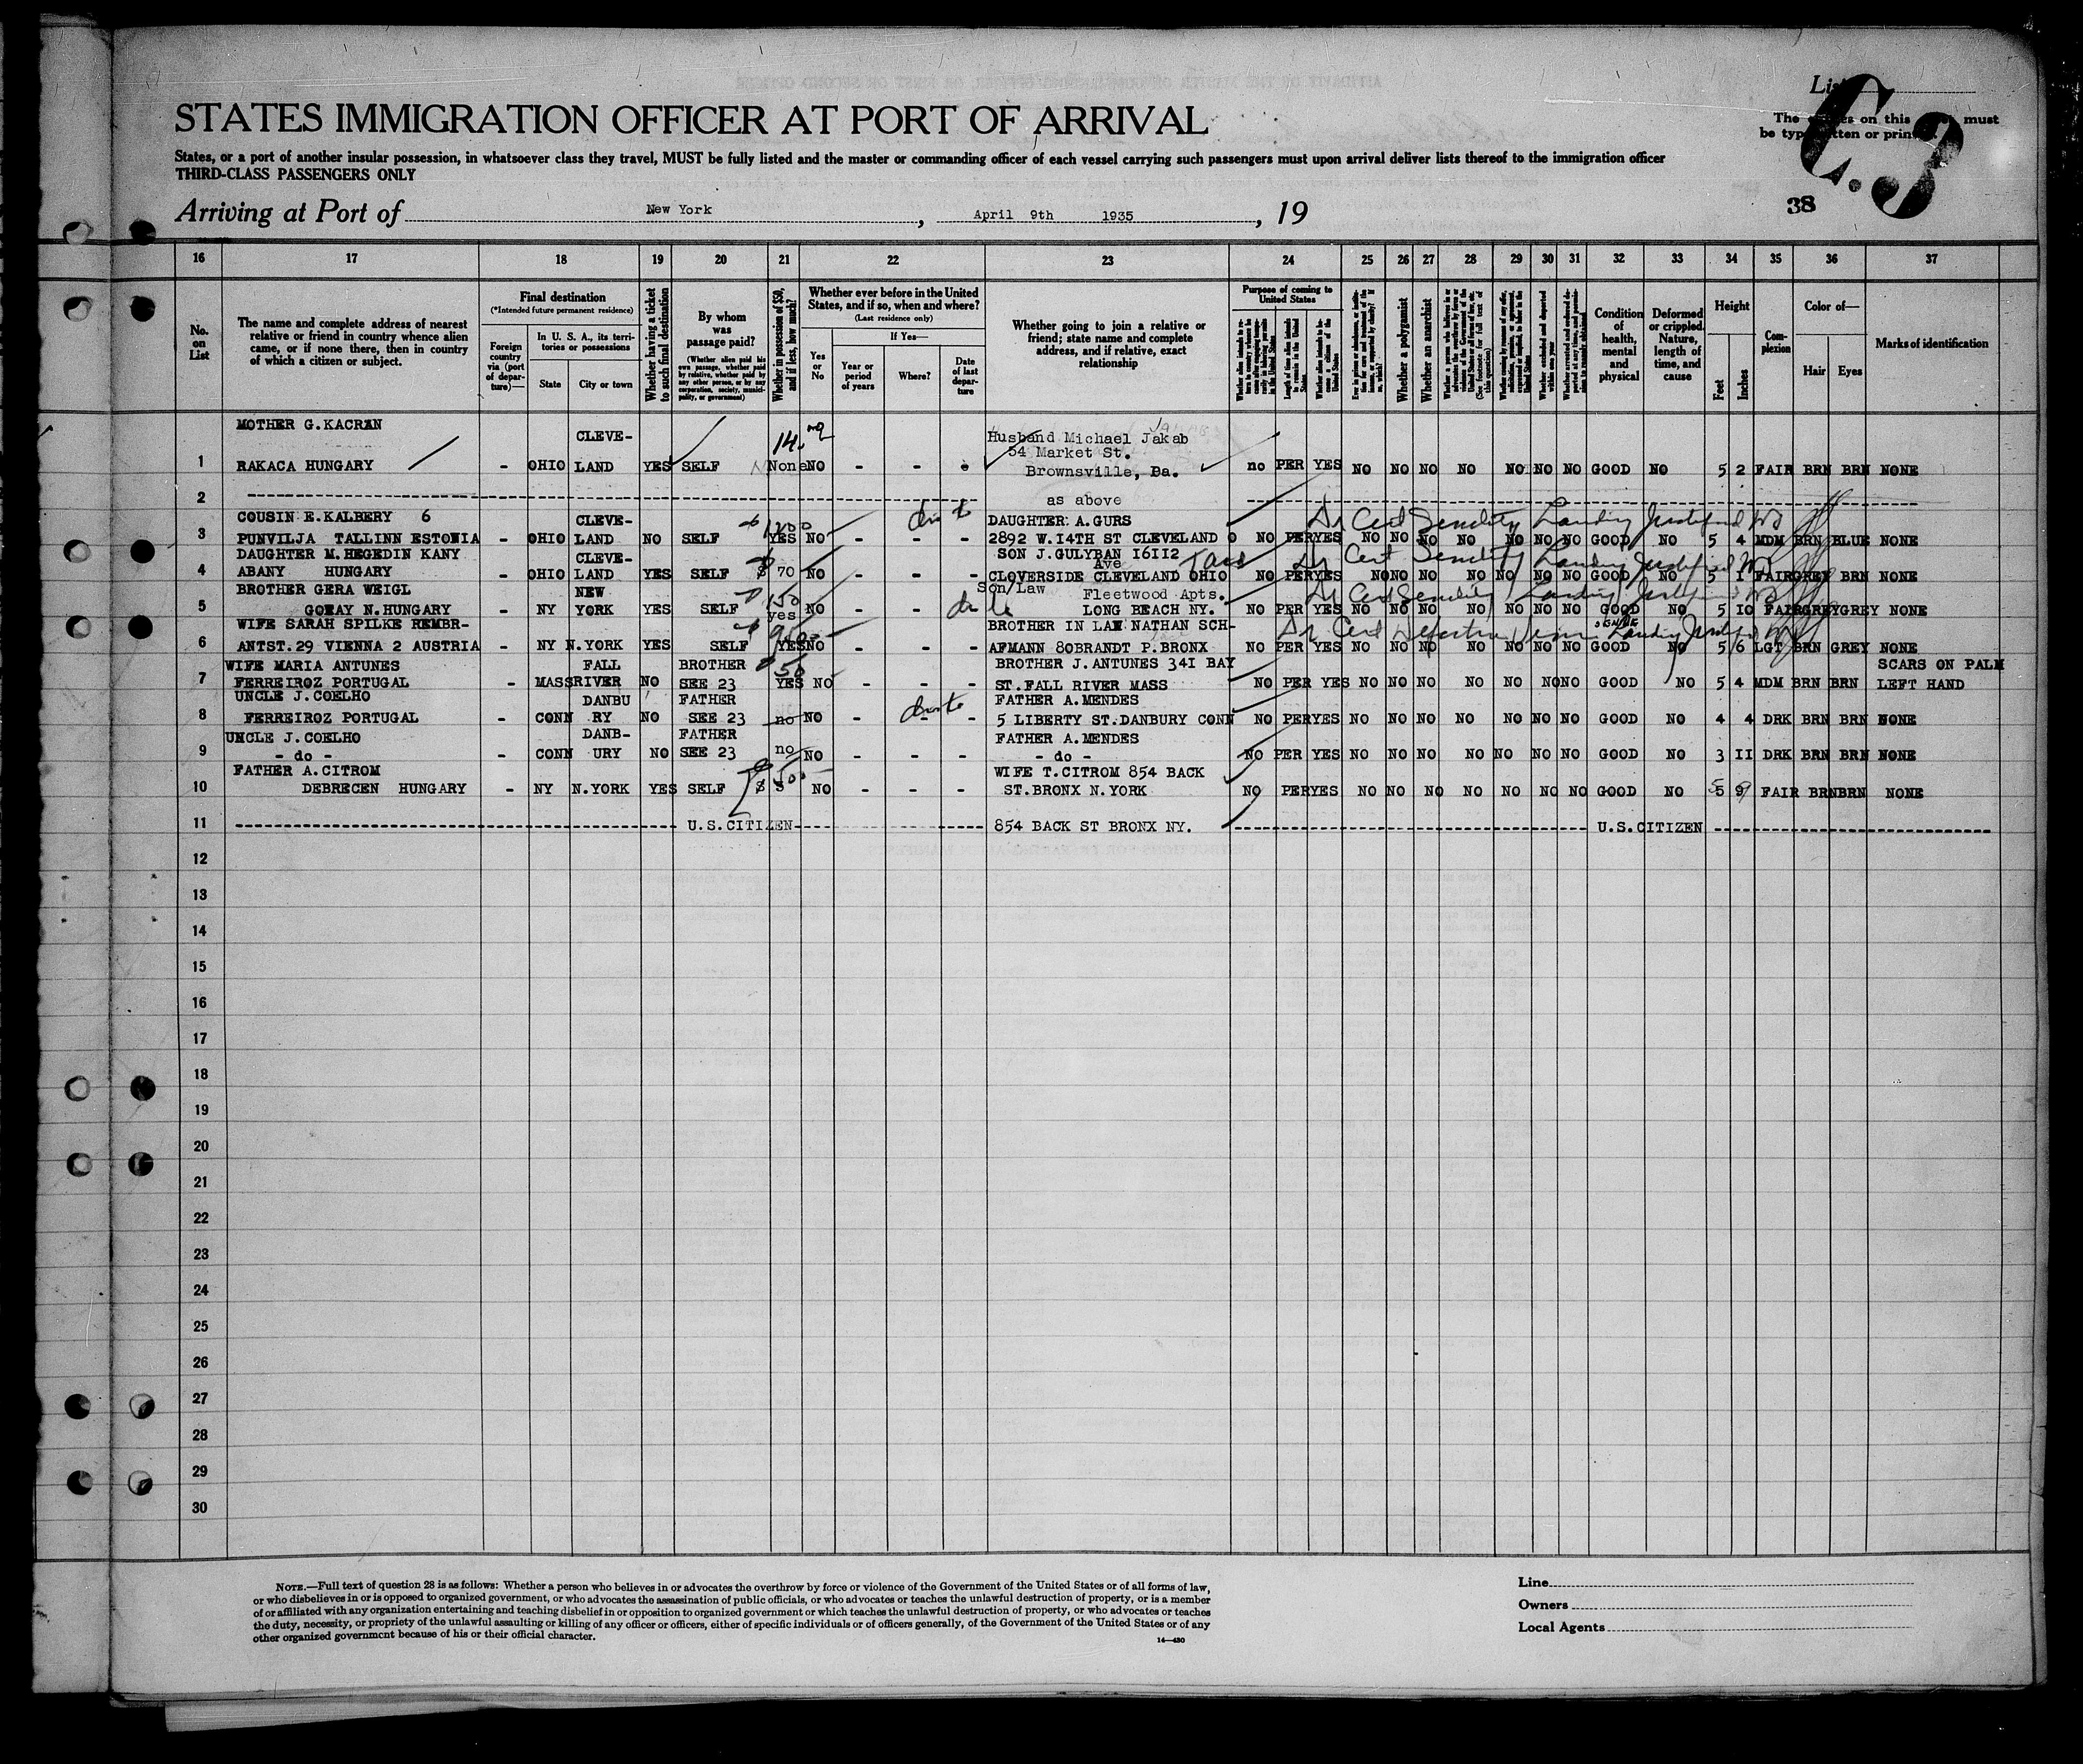 List
C.3
STATES IMMIGRATION OFFICER AT PORT OF ARRIVAL
The on this must
be typewritten or printed.
States, or a port of another insular possession, in whatsoever class they travel, MUST be fully listed and the master or commanding officer of each vessel carrying such passengers must upon arrival deliver lists thereof to the immigration officer
THIRD-CLASS PASSENGERS ONLY
38
Arriving at Port of New York, April 9th 1935, 19
16 17 18 19 20 21 22 23 24 25 26 27 28 29 30 31 32 33 34 35 36 37
No. on List
The name and complete address of nearest relative or friend in country whence alien came, or if none there, then in country of which a citizen or subject.
Final destination
(*Intended future permanent residence)
Foreign country via (port of departure)—
In U. S. A., its territories or possessions
State
City or town
Whether having a ticket to such final destination
By whom was passage paid?
(Whether alien paid his own passage, whether paid by relative, whether paid by any other person, or by any corporation, society, municipality, or government)
Whether in possession of $50, and if less, how much?
Whether ever before in the United States, and if so, when and where?
(Last residence only)
Yes or No
If Yes—
Year or period of years
Where?
Date of last departure
Whether going to join a relative or friend; state name and complete address, and if relative, exact relationship
Purpose of coming to United States
Length of time alien intends to remain in the United States
Whether alien intends to become a citizen of the United States
Whether a polygamist
Whether an anarchist
Condition of health, mental and physical
Deformed or crippled. Nature, length of time, and cause
Height
Feet
Inches
Complexion
Color of—
Hair
Eyes
Marks of identification
MOTHER G. KACRAN CLEVE- 14. Husband Michael Jakab
54 Market St.
1 RAKACA HUNGARY - OHIO LAND YES SELF None NO - - - Brownsville, Ba. no PER YES NO NO NO NO NO NO NO GOOD NO 5 2 FAIR BRN BRN NONE
2 as above
COUSIN E.KALBERY 6 CLEVE- DAUGHTER A.GURS Dr Cert Senility Landing Justified
3 PUNVILJA TALLINN ESTONIA - OHIO LAND NO SELF YES NO - - - 2892 W.I4TH ST CLEVELAND O NO PER YES NO NO NO NO NO NO NO GOOD NO 5 4 MDM BRN BLUE NONE
DAUGHTER M.HEGEDIN KANY CLEVE- SON J.GULYBAN I6II2 Ave Dr Cert Senility Landing Justified
4 ABANY HUNGARY - OHIO LAND YES SELF $ 70 NO - - - CLOVERSIDE CLEVELAND OHIO NO PER YES NO NO NO NO NO NO NO GOOD NO 5 I FAIR GREY BRN NONE
BROTHER GERA WEIGL NEW 150 Son/Law Fleetwood Apts. Dr Cert Senility Landing Justified
5 GORAY N.HUNGARY - NY YORK YES SELF yes NO - - LONG BEACH NY. NO PER YES NO NO NO NO NO NO NO GOOD NO 5 IO FAIR GREY GREY NONE
WIFE SARAH SPILKE REMBR- BROTHER IN LAW NATHAN SCH- Dr Cert Defective Vision Landing Justified
6 ANTST.29 VIENNA 2 AUSTRIA - NY N.YORK YES SELF YES NO - - - AFMANN 80BRANDT P.BRONX NO PER YES NO NO NO NO NO NO NO GOOD NO 5 6 LGT BRN GREY NONE
WIFE MARIA ANTUNES FALL BROTHER 50 BROTHER J.ANTUNES 34I BAY SCARS ON PALM
7 FERREIROZ PORTUGAL - MASS RIVER NO SEE 23 YES NO - - - ST.FALL RIVER MASS NO PER YES NO NO NO NO NO NO NO GOOD NO 5 4 MDM BRN BRN LEFT HAND
UNCLE J.COELHO DANBU FATHER FATHER A.MENDES
8 FERREIROZ PORTUGAL - CONN RY NO SEE 23 no NO - - - 5 LIBERTY ST.DANBURY CONN NO PER YES NO NO NO NO NO NO NO GOOD NO 4 4 DRK BRN BRN NONE
UNCLE J.COELHO DANB- FATHER FATHER A.MENDES
9 - do - - CONN URY NO SEE 23 no NO - - - - do - NO PER YES NO NO NO NO NO NO NO GOOD NO 3 II DRK BRN BRN NONE
FATHER A.CITROM WIFE T.CITROM 854 BACK
10 DEBRECEN HUNGARY - NY N.YORK YES SELF $ NO - - - ST.BRONX N.YORK NO PER YES NO NO NO NO NO NO NO GOOD NO 5 9 FAIR BRN BRN NONE
11 U.S.CITIZEN 854 BACK ST BRONX NY. U.S.CITIZEN
12
13
14
15
16
17
18
19
20
21
22
23
24
25
26
27
28
29
30
NOTE.—Full text of question 28 is as follows: Whether a person who believes in or advocates the overthrow by force or violence of the Government of the United States or of all forms of law,
or who disbelieves in or is opposed to organized government, or who advocates the assassination of public officials, or who advocates or teaches the unlawful destruction of property, or is a member
of or affiliated with any organization entertaining and teaching disbelief in or opposition to organized government or which teaches the unlawful destruction of property, or who advocates or teaches
the duty, necessity, or propriety of the unlawful assaulting or killing of any officer or officers, either of specific individuals or of officers generally, of the Government of the United States or of any
other organized government because of his or their official character.
14—430
Line
Owners
Local Agents